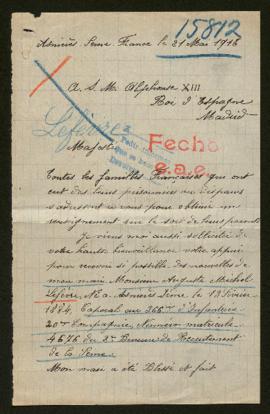 15812
Asnières, Seine, France le 31 Mai 1916
A. S. M. Alphonse XIII
Roi d'Espagne
Madrid
Lefèvre
Majesté
Fecho
s.a.e.
Toutes les familles Françaises qui ont
eut des leurs prisonniers ou disparus
s'adressent à vous pour obtenir un
renseignement sur le sort de leurs parents
je viens moi aussi solliciter de
votre haute bienveillance votre appui
pour recevoir si possible des nouvelles de
mon mari Monsieur Auguste Michel
Lefèvre, Né à Asnières Seine, le 13 Février
1884, Caporal au 366e d'Infanterie
20me Compagnie, Numéro matricule
4676 du 2e Bureau de Recrutement
de la Seine
Mon mari a été Blessé et fait